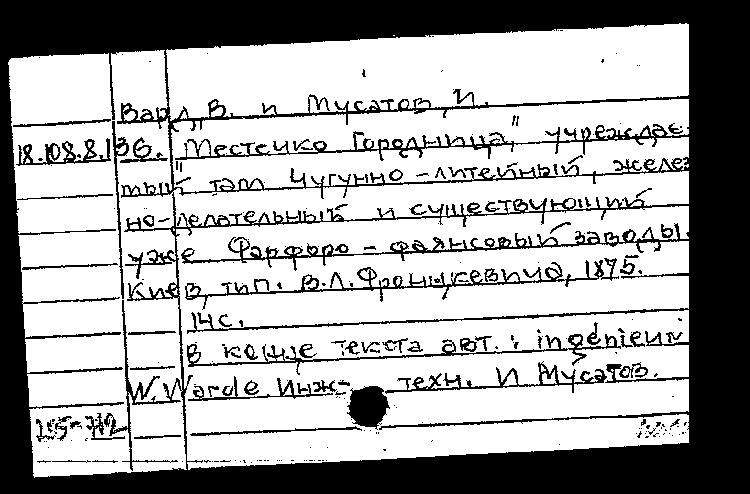 Вард, В. и Мусатов, И.
18.108.8.136. "Местечко Городница," учреждае-
мый там Чугунно-литейный, желез
но-делательный и существующий
уже Фарфоро-фаянсовый заводы.
Киев, тип. В.Л. Фронцкевича, 1875.
14с.
В конце текста авт.: ingénieur
W. Warde. Инж-техн. И Мусатов.